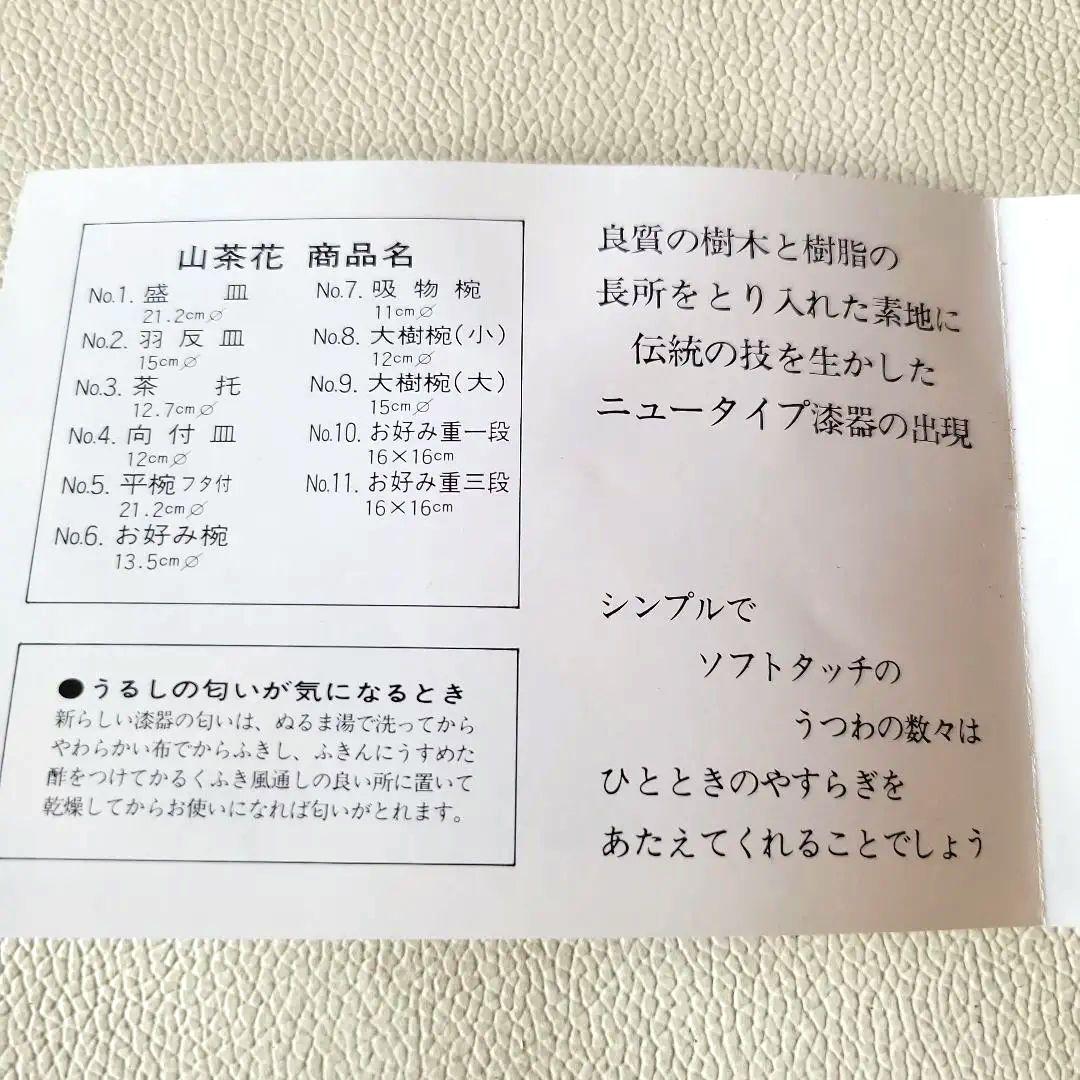 山茶花 商品名
No.1. 盛 皿
21.2cm∅
No.2. 羽反皿
15cm∅
No.3. 茶 托
12.7cm∅
No.4. 向付皿
12cm∅
No.5. 平椀フタ付
21.2cm∅
No.6. お好み椀
13.5cm∅
No.7. 吸物椀
11cm∅
No.8. 大樹椀(小)
12cm∅
No.9. 大樹椀(大)
15cm∅
No.10. お好み重一段
16×16cm
No.11. お好み重三段
16×16cm
●うるしの匂いが気になるとき
新らしい漆器の匂いは、ぬるま湯で洗ってから
やわらかい布でからふきし、ふきんにうすめた
酢をつけてかるくふき風通しの良い所に置いて
乾燥してからお使いになれば匂いがとれます。
良質の樹木と樹脂の
長所をとり入れた素地に
伝統の技を生かした
ニュータイプ漆器の出現
シンプルで
ソフトタッチの
うつわの数々は
ひとときのやすらぎを
あたえてくれることでしょう